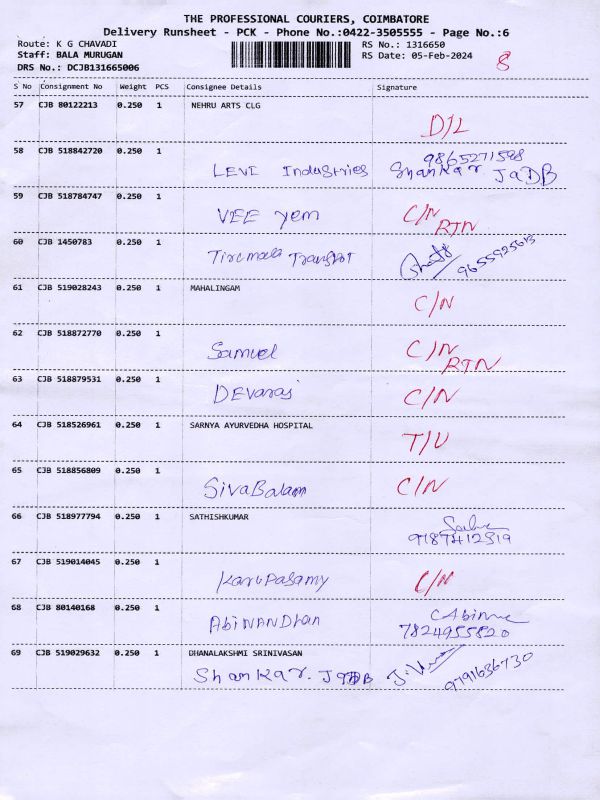 THE PROFESSIONAL COURIERS, COIMBATORE
Delivery Runsheet - PCK - Phone No.:0422-3505555 - Page No.:6
Route: K G CHAVADI RS No.: 1316650
Staff: BALA MURUGAN RS Date: 05-Feb-2024 8
DRS No.: DCJB131665006
S No Consignment No Weight PCS Consignee Details Signature
57 CJB 80122213 0.250 1 NEHRU ARTS CLG
D/L
58 CJB 518842720 0.250 1 9865271598
LEVI Industries Shankar JaDB
59 CJB 518784747 0.250 1
VEE yem C/N
RTN
60 CJB 1450783 0.250 1
9655925613
61 CJB 519028243 0.250 1 MAHALINGAM
C/N
62 CJB 518872770 0.250 1
Samuel C/N
RTN
63 CJB 518879531 0.250 1
DEvaraj C/N
64 CJB 518526961 0.250 1 SARNYA AYURVEDHA HOSPITAL
T/U
65 CJB 518856809 0.250 1
SivaBalam C/N
66 CJB 518977794 0.250 1 SATHISHKUMAR
67 CJB 519014045 0.250 1
Karupasamy C/N
68 CJB 80140168 0.250 1
AbiNANDhan
7824955820
69 CJB 519029632 0.250 1 DHANALAKSHMI SRINIVASAN
Shankar. 9791636730